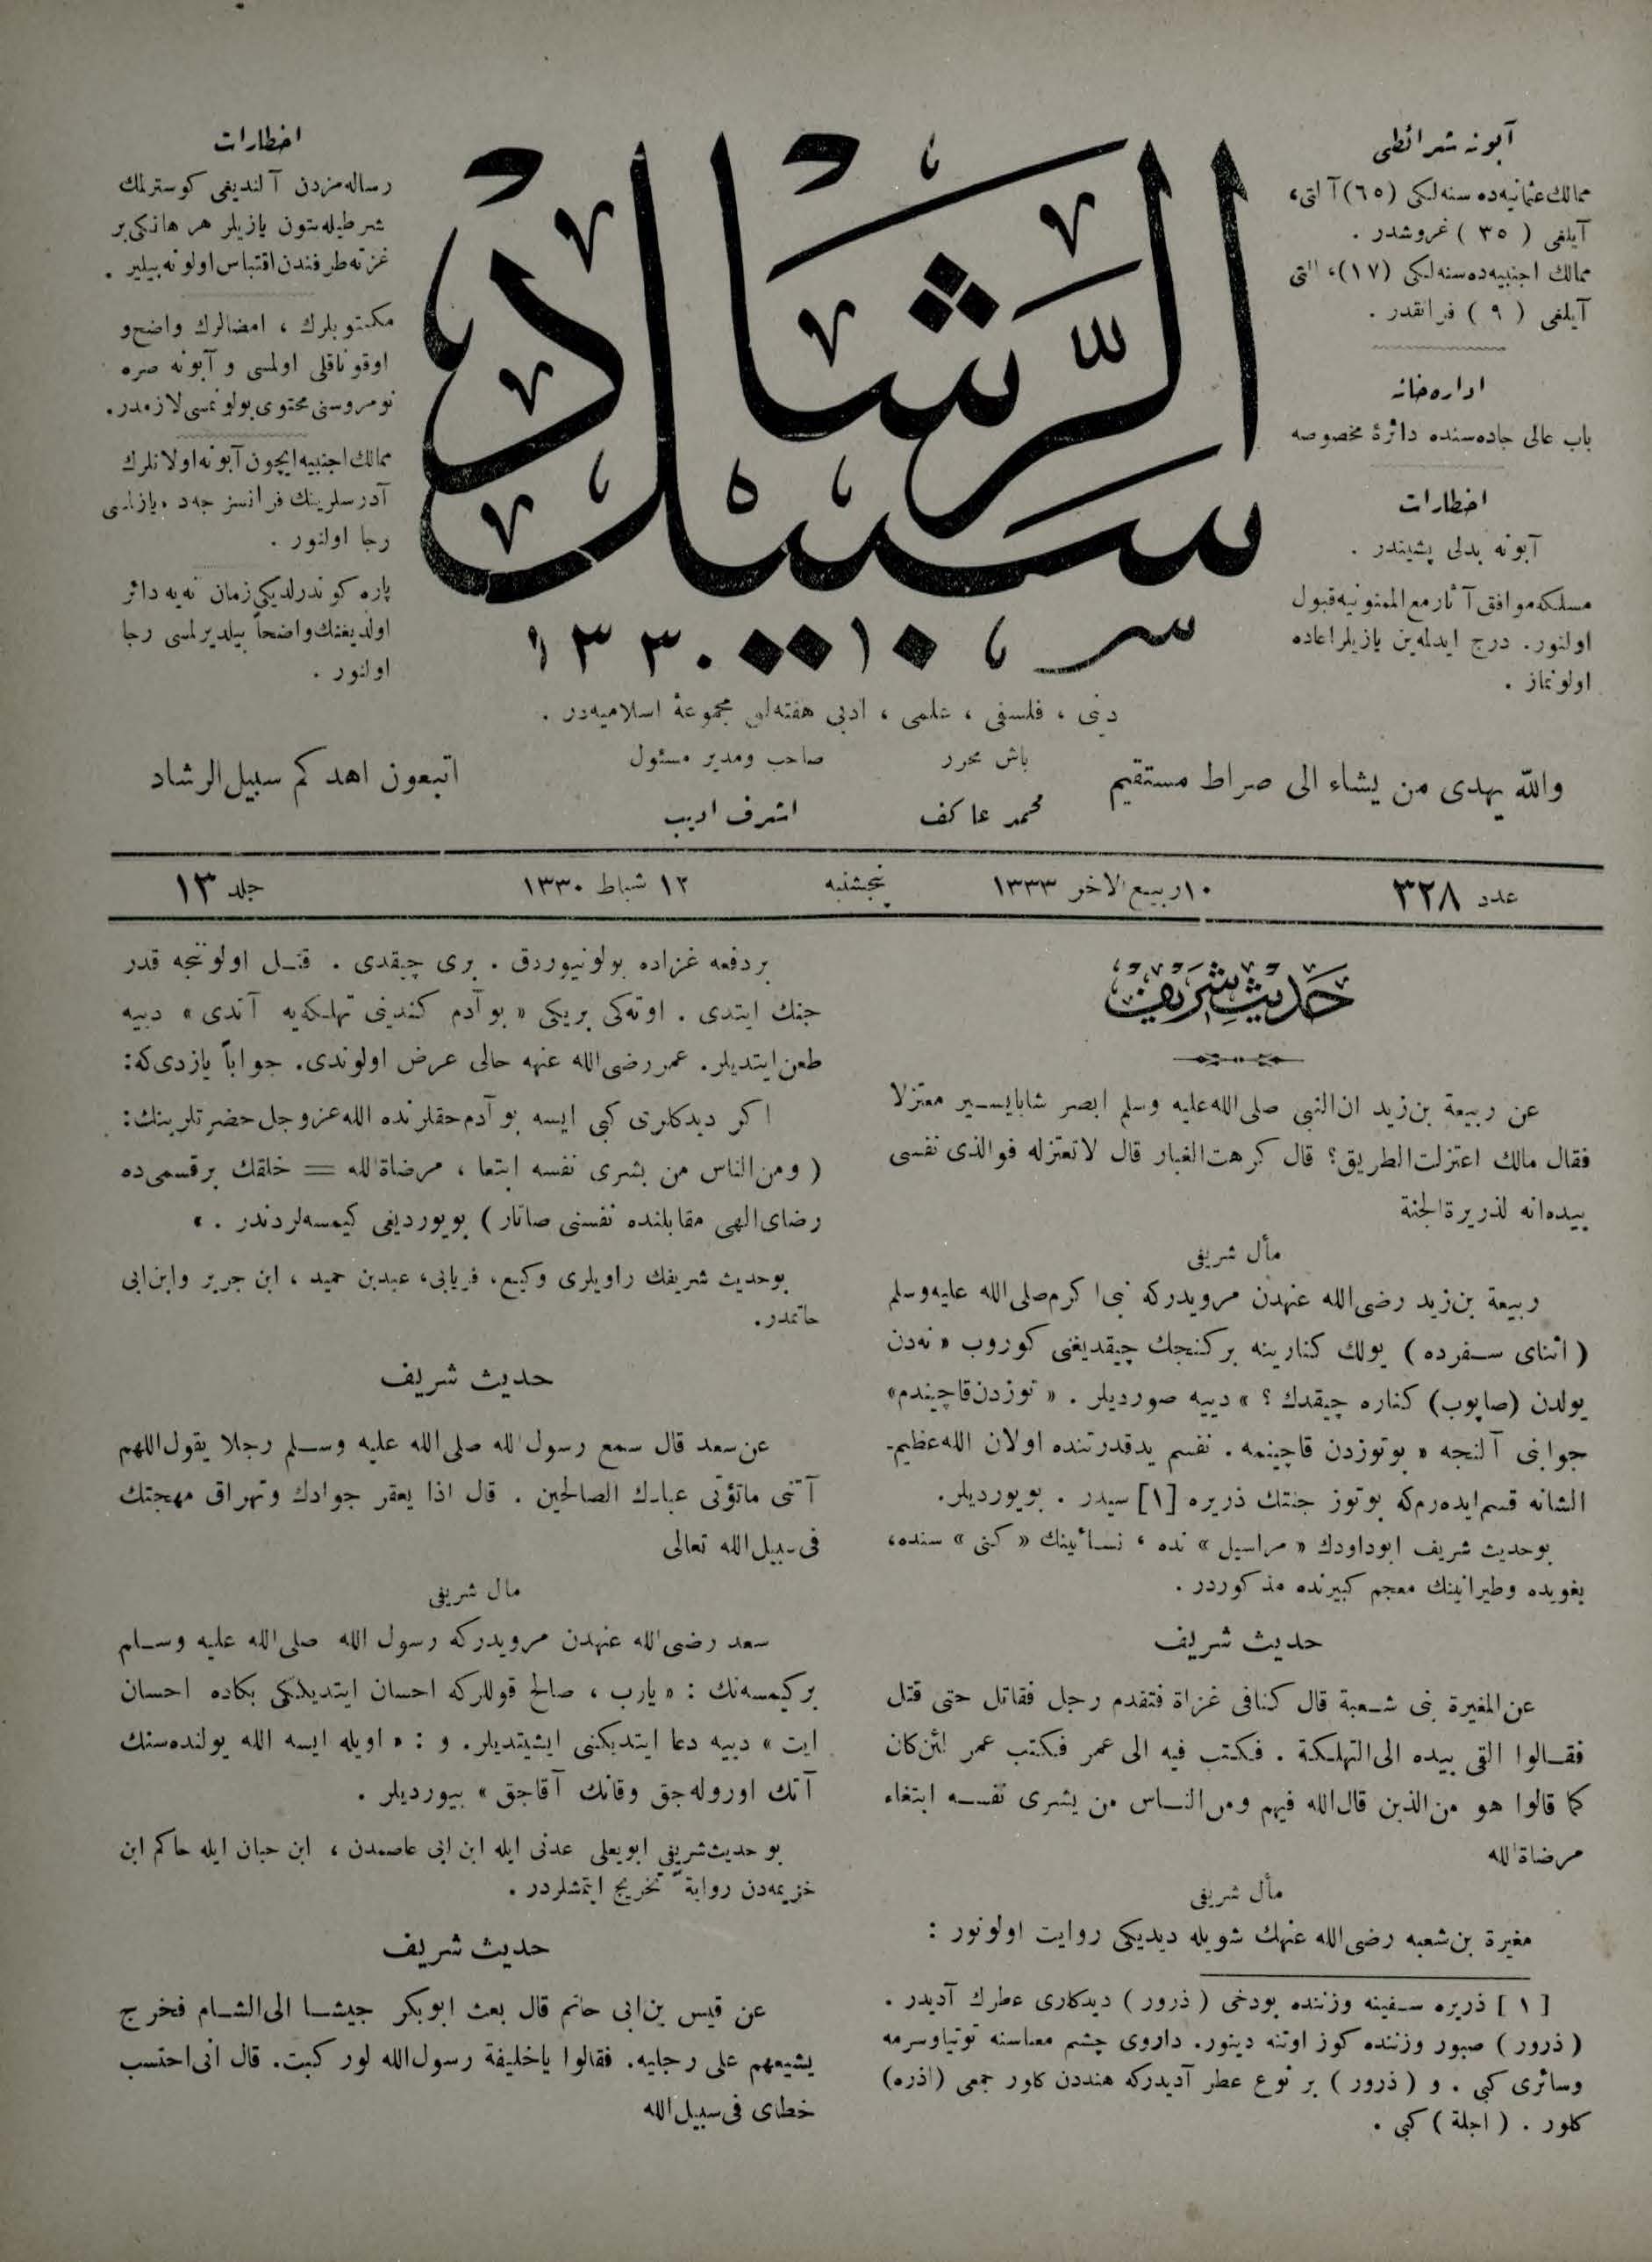 آبونه شرائطی
ممالك عثمانیه‌ده سنه‌لكی (٦٥) آلتی،
آیلغی ( ٣٥ ) غروشدر .
ممالك اجنبیه‌ده سنه‌لكی (١٧)، التی
آیلغی ( ٩ ) فرانقدر .
اداره‌خانه
باب عالی جاده‌سنده دائرۀ مخصوصه
اخطارات
آبونه بدلی پشیندر .
مسلكه موافق آثار مع الممنونیه قبول
اولنور. درج ایدلمه‌ین یازیلر اعاده
اولونماز .
سبیل الرشاد
١٣٣٠
اخطارات
رساله‌مزدن آلندیغی كوسترلمك
شرطیله بتون یازیلر هر هانكی بر
غزته طرفندن اقتباس اولونه بیلیر .
مكتوبلرك ، امضالرك واضح و
اوقوناقلی اولمسی و آبونه صره
نومروسنی محتوی بولونمسی لازمدر.
ممالك اجنبیه ایچون آبونه اولانلرك
آدرسلرینك فرانسزجه‌ده یازلمسی
رجا اولنور .
پاره كوندرلدیكی زمان نه‌یه دائر
اولدیغنك واضحاً بیلدیرلمسی رجا
اولنور .
دینی ، فلسفی ، علمی ، ادبی هفته‌لق مجموعۀ اسلامیه‌در .
والله یهدی من یشاء الی صراط مستقیم
باش محرر
محمد عاكف
صاحب ومدیر مسئول
اشرف ادیب
اتبعون اهدكم سبیل الرشاد
عدد ٣٢٨
١٠ ربیع الاخر ١٣٣٣
پنجشنبه
١٢ شباط ١٣٣٠
جلد ١٣
حدیث شریف
عن ربیعة بن زید ان النبی صلی الله علیه وسلم ابصر شابا یسیر معتزلا
فقال مالك اعتزلت الطریق؟ قال كرهت الغبار قال لا تعتزله فوالذی نفسی
بیده انه لذریرة الجنة
مأل شریفی
ربیعة بن زید رضی الله عنهدن مرویدركه نبی اكرم صلی الله علیه وسلم
( اثنای سفرده ) یولك كنارینه بر كنجك چیقدیغنی كوروب « نه‌دن
یولدن (صاپوب) كناره چیقدك ؟ » دییه صوردیلر . « توزدن قاچیندم»
جوابنی آلنجه « بو توزدن قاچینمه . نفسم ید قدرتنده اولان الله عظیم-
الشانه قسم ایده‌رم كه بو توز جنتك ذریره [١] سیدر . بویوردیلر.
بوحدیث شریف ابوداودك « مراسیل » نده ، نسائینك « كنی » سنده،
بغویده وطبرانینك معجم كبیرنده مذكوردر .
حدیث شریف
عن المغیرة بن شعبة قال كنا فی غزاة فتقدم رجل فقاتل حتی قتل
فقالوا القی بیده الی التهلكة . فكتب فیه الی عمر فكتب عمر لئن كان
كما قالوا هو من الذین قال الله فیهم ومن الناس من یشری نفسه ابتغاء
مرضاة الله
مأل شریفی
مغیرة بن شعبه رضی الله عنهك شویله دیدیكی روایت اولونور :
[ ١ ] ذریره سفینه وزننده بودخی ( ذرور ) دیدكلری عطرك آدیدر .
( ذرور ) صبور وزننده كوز اوتنه دینور. داروی چشم معناسنه توتیا وسرمه
وسائری كبی . و ( ذرور ) بر نوع عطر آدیدركه هنددن كلور جمعی (اذره)
كلور . ( اجلة ) كبی .
بر دفعه غزاده بولونیوردق . بری چیقدی . قتل اولوننجه قدر
جنك ایتدی . اوته‌كی بریكی « بو آدم كندینی تهلكه‌یه آتدی » دییه
طعن ایتدیلر. عمر رضی الله عنهه حالی عرض اولوندی. جواباً یازدی كه:
اكر دیدكلری كبی ایسه بو آدم حقلرنده الله عزوجل حضرتلرینك:
( ومن الناس من یشری نفسه ابتغا ، مرضاة الله = خلقك بر قسمی ده
رضای الهی مقابلنده نفسنی صاتار ) بویوردیغی كیمسه‌لردندر . »
بوحدیث شریفك راویلری وكیع، فریابی، عبدبن حمید ، ابن جریر وابن ابی
حاتمدر.
حدیث شریف
عن سعد قال سمع رسول الله صلی الله علیه وسلم رجلا یقول اللهم
آتنی ماتؤتی عبادك الصالحین . قال اذا یعقر جوادك وتهراق مهجتك
فی سبیل الله تعالی
مال شریفی
سعد رضی الله عنهدن مرویدركه رسول الله صلی الله علیه وسلم
بر كیمسه‌نك : « یارب ، صالح قوللركه احسان ایتدیككی بكاده احسان
ایت » دییه دعا ایتدیكنی ایشیتدیلر. و : « اویله ایسه الله یولنده سنك
آتك اوروله‌جق وقانك آقاجق » بیوردیلر .
بو حدیث شریفی ابویعلی عدنی ایله ابن ابی عاصمدن ، ابن حبان ایله حاكم ابن
خزیمه‌دن روایةً تخریج ایتمشلردر .
حدیث شریف
عن قیس بن ابی حاتم قال بعث ابوبكر جیشا الی الشام فخرج
یشیعهم علی رجلیه. فقالوا یاخلیفة رسول الله لو ركبت. قال انی احتسب
خطای فی سبیل الله